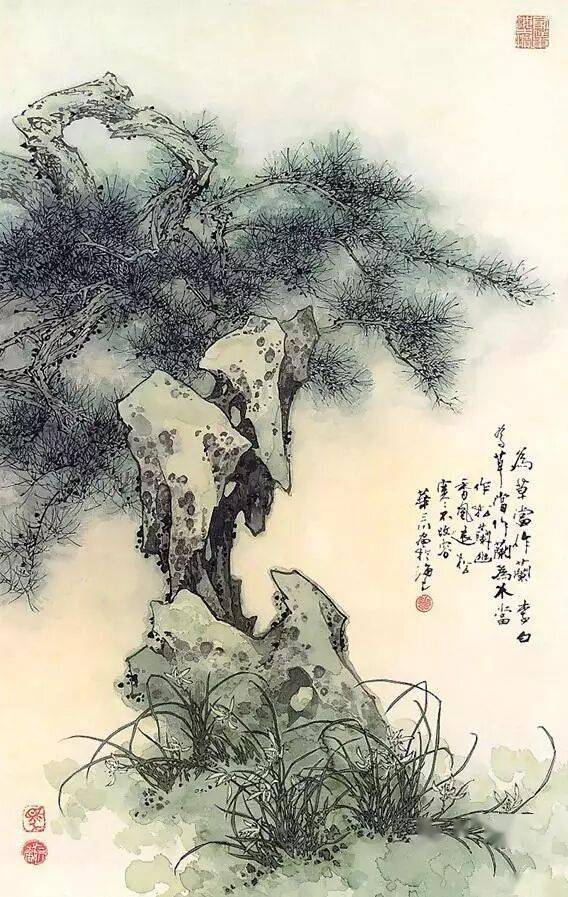 為草當作蘭 李白
為草當作蘭為木當
作松蘭幽
香風遠松
寒不改容
華三川寫於海上